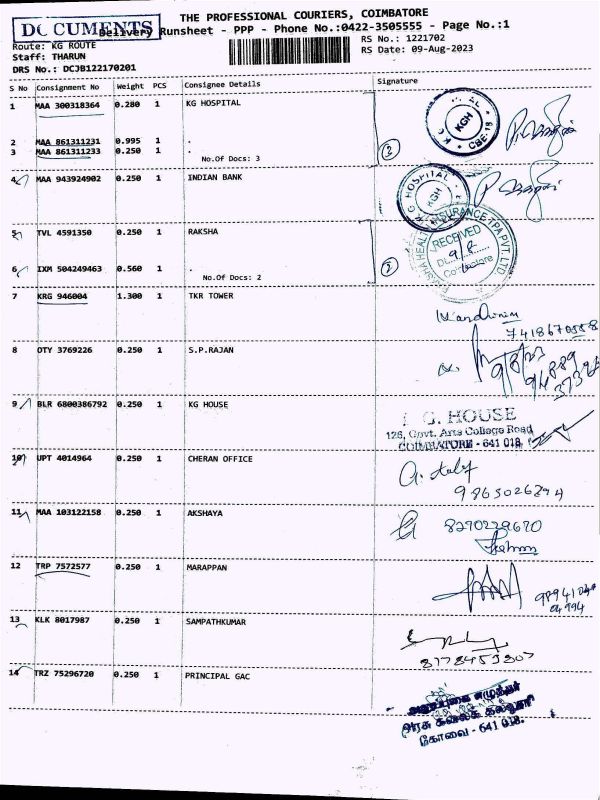 THE PROFESSIONAL COURIERS, COIMBATORE
DOCUMENTS
Delivery Runsheet - PPP - Phone No.:0422-3505555 - Page No.:1
Route: KG ROUTE
RS No.: 1221702
Staff: THARUN
RS Date: 09-Aug-2023
DRS No.: DCJB122170201
S No Consignment No Weight PCS Consignee Details Signature
1 MAA 300318364 0.280 1 KG HOSPITAL
KGH
CBE-18
2 MAA 861311231 0.995 1 .
3 MAA 861311233 0.250 1 .
No.Of Docs: 3
3
4 MAA 943924902 0.250 1 INDIAN BANK
K G HOSPITAL
KGH
5 TVL 4591350 0.250 1 RAKSHA
RAKSHA HEALTH INSURANCE TPA PVT. LTD
RECEIVED
9/8
Coimbatore
6 IXM 504249463 0.560 1 .
No.Of Docs: 2
2
7 KRG 946004 1.300 1 TKR TOWER
8 OTY 3769226 0.250 1 S.P.RAJAN
9/8/23
94889
9 BLR 6800386792 0.250 1 KG HOUSE
G. HOUSE
126, Govt. Arts College Road
COIMBATORE - 641 018.
10 UPT 4014964 0.250 1 CHERAN OFFICE
11 MAA 103122158 0.250 1 AKSHAYA
8270229670
12 TRP 7572577 0.250 1 MARAPPAN
13 KLK 8017987 0.250 1 SAMPATHKUMAR
14 TRZ 75296720 0.250 1 PRINCIPAL GAC
அரசு கலைக் கல்லூரி
கோவை - 641 018.